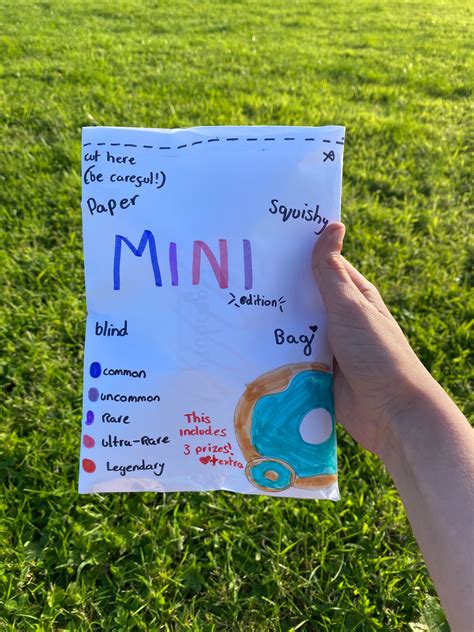 cut here
(be careful!)
Paper
Squishy
MINI
edition
blind
Bag
common
uncommon
Rare
Ultra-Rare
Legendary
This
includes
3 prizes!
+extra